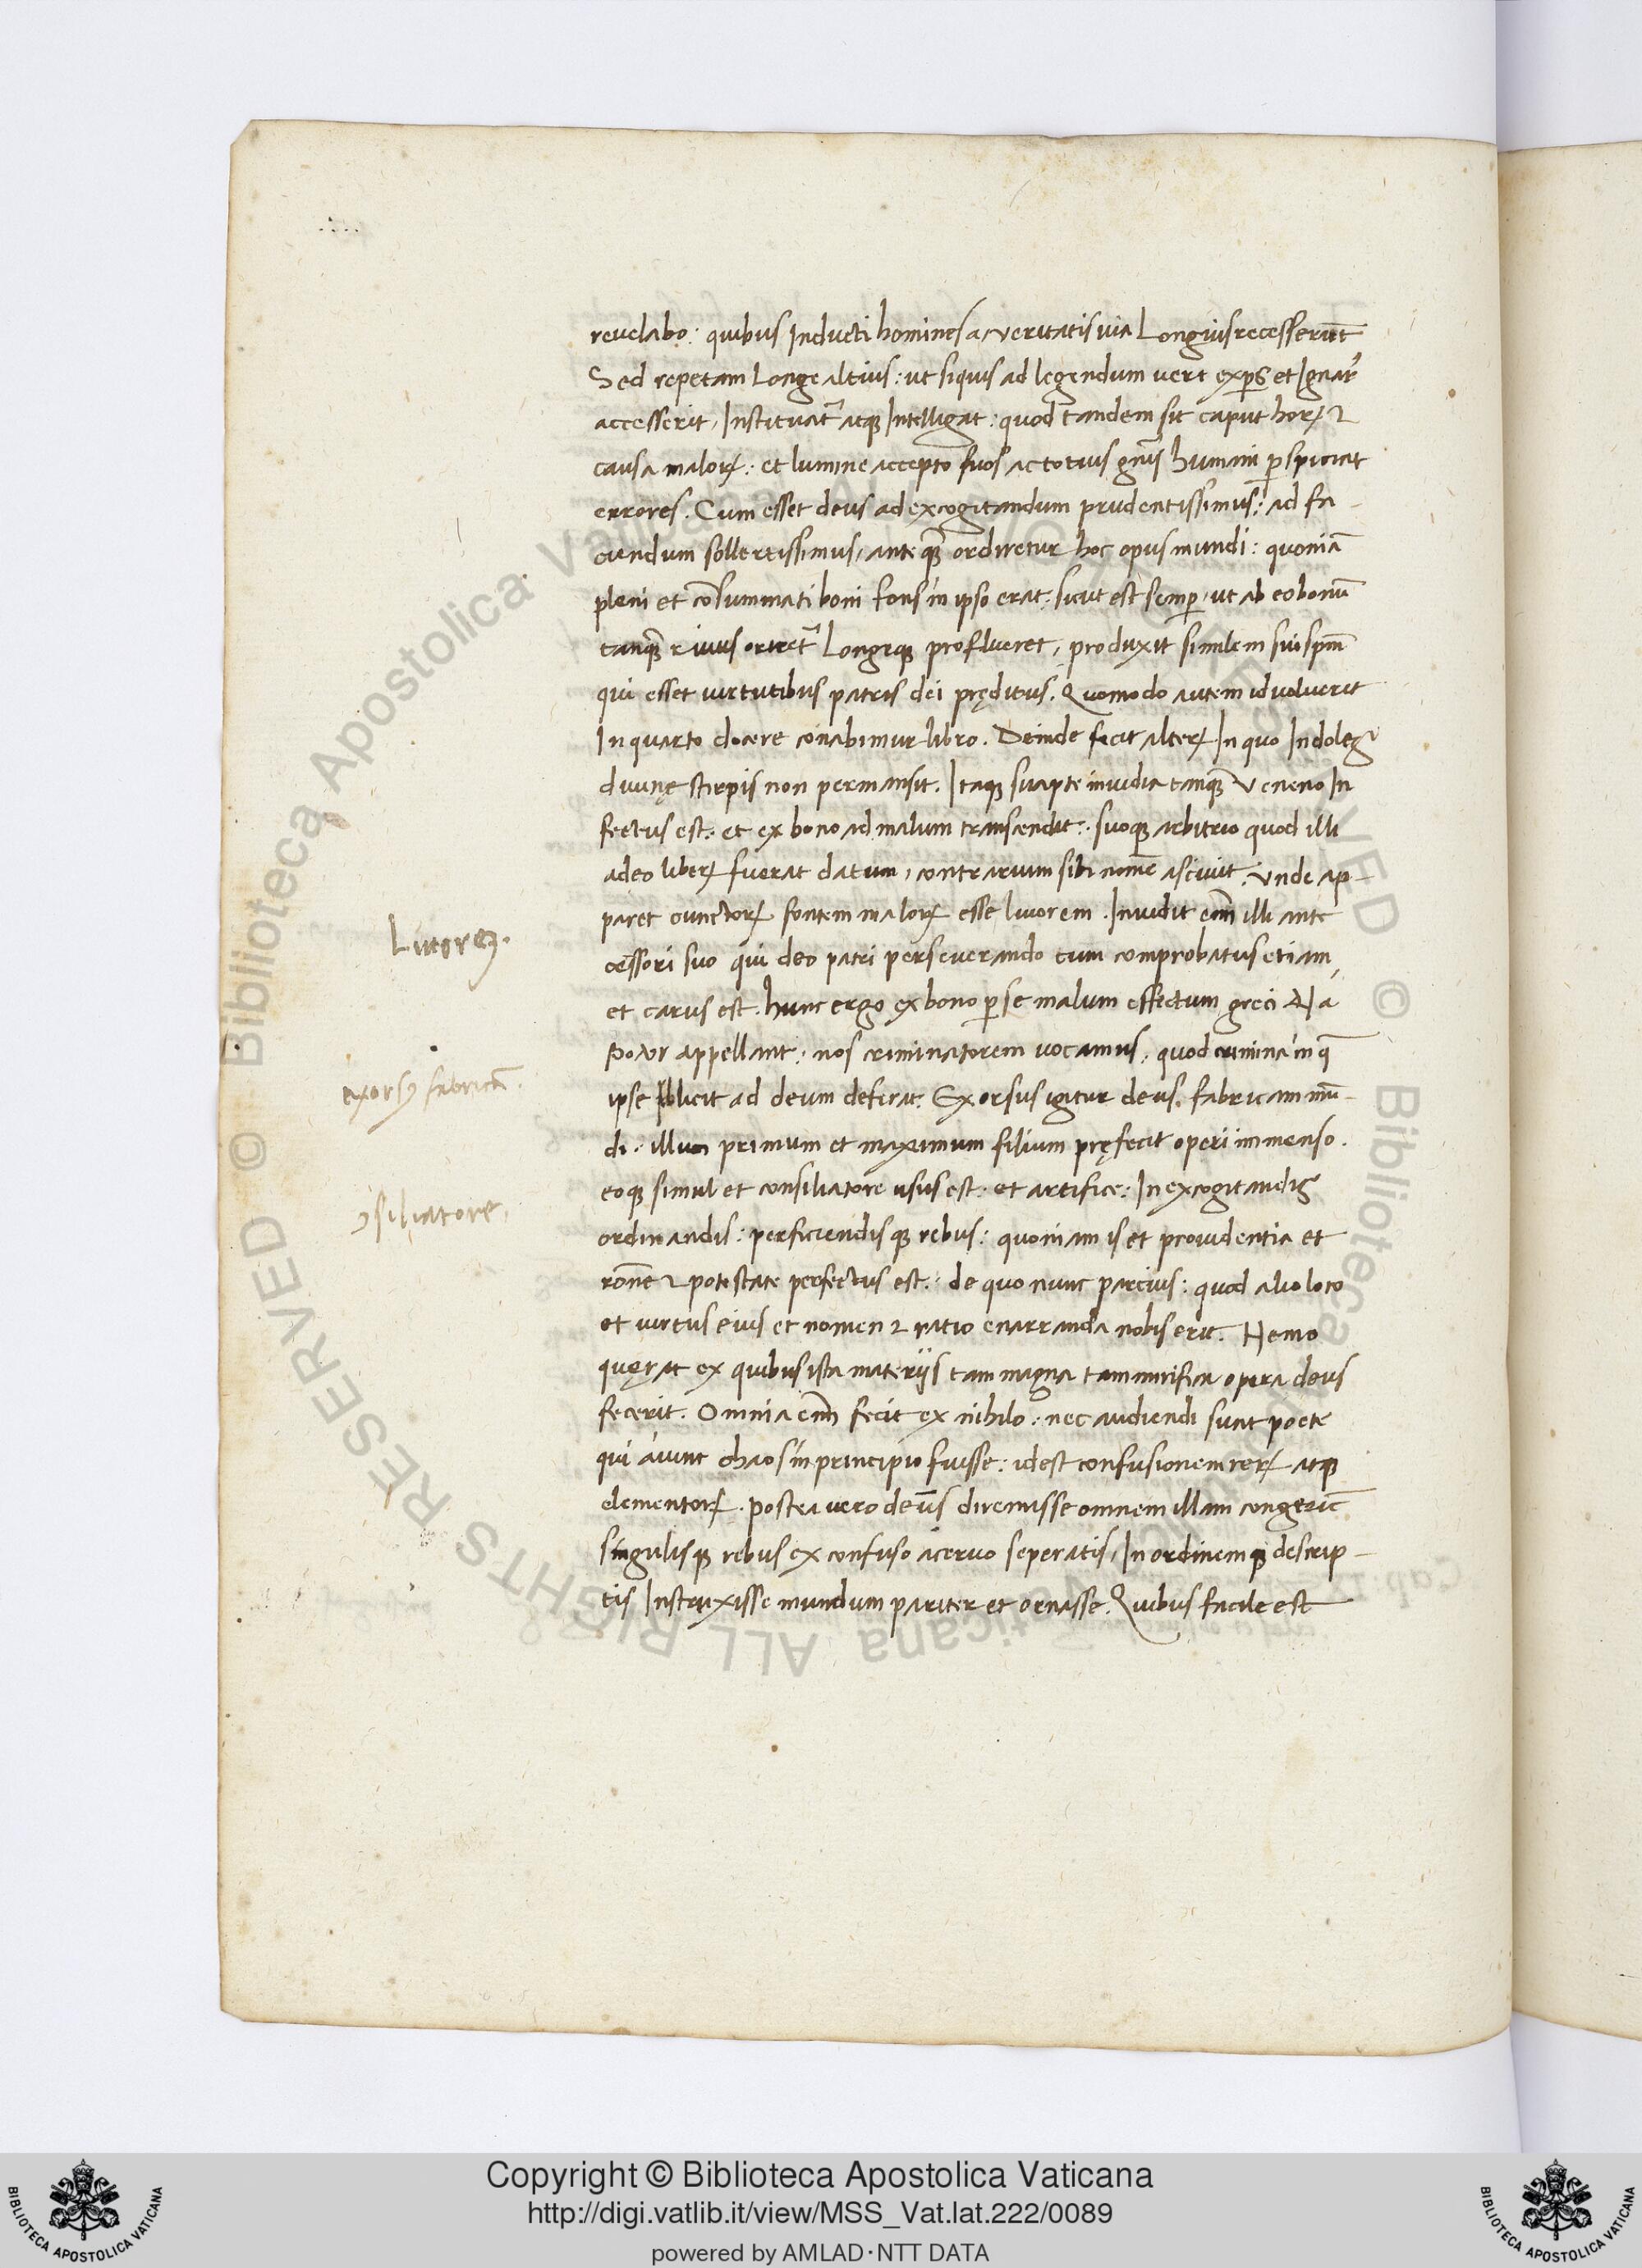 reuelabo: quibus Inducti homines a ueritatis uia Longius recesserūt
Sed repetam Longe altius: ut siquis ad legendum ueri expers et Ignar᾽
accesserit, Instituat᷑ atqꝫ Intelligat: quod tandem sit caput horꝝ ⁊
causa malorꝝ: et lumine accepto suos ac totius gn̄is humani ꝑspiciat
errores. Cum esset deus ad excogitandum prudentissimus: ad fa-
ciendum sollertissimus, ante qꝫ̄ ordiretur hoc opus mundi: quoniā
pleni et cōsummati boni fons in ipso erat: sicut est semꝑ, ut ab eo bonū
tanqꝫ̄ riuus oriret᷑ Longeqꝫ proflueret, produxit similem sui spm̄
qui esset uirtutibus patris dei pręditus. Quomodo autem id uoluerit
In quarto docere conabimur libro. Deinde fecit alterꝝ In quo Indoles
diuinę stirpis non permansit. Itaqꝫ suapte inuidia tanqꝫ̄ Veneno In
fectus est: et ex bono ad malum transcendit: suoqꝫ arbitrio quod illi
a deo liberꝝ fuerat datum, contrarium sibi nomē asciuit. Vnde ap-
paret cunctorꝝ fontem malorꝝ esse liuorem. Inuidit em̄ illi ante
cessori suo qui deo patri perseuerando cum comprobatus etiam
et carus est. hunc ergo ex bono ꝑ se malum effectum greci
appellant: nos criminatorem uocamus, quod crimina in q̄
ipse Illicit ad deum deferat. Exorsus igitur deus fabricam mū-
di: illum primum et maximum filium pręfecit operi immenso.
eoqꝫ simul et consiliatore usus est: et artifice: In excogitandis
ordinandis: perficiendisqꝫ rebus: quoniam is et prouidentia et
rōne ⁊ potestate perfectus est: de quo nunc parcius: quod alio loco
et uirtus eius et nomen ⁊ ratio enarranda nobis erit. Nemo
quęrat ex quibus ista materijs tam magna tam mirifica opera deus
fecerit. Omnia em̄ fecit ex nihilo: nec audiendi sunt poete
qui aiunt chaos in principio fuisse: idest confusionem rerꝝ atqꝫ
elementorꝝ. postea uero deus diremisse omnem illam congeriē
singulisqꝫ rebus ex confuso aceruo seperatis, In ordinemqꝫ descrip-
tis Instruxisse mundum pariter et ornasse. Quibus facile est
Liuorem.
exorsꝰ fabricā.
ꝯsiliatore,
Copyright © Biblioteca Apostolica Vaticana
http://digi.vatlib.it/view/MSS_Vat.lat.222/0089
powered by AMLAD·NTT DATA
BIBLIOTECA APOSTOLICA VATICANA
BIBLIOTECA APOSTOLICA VATICANA